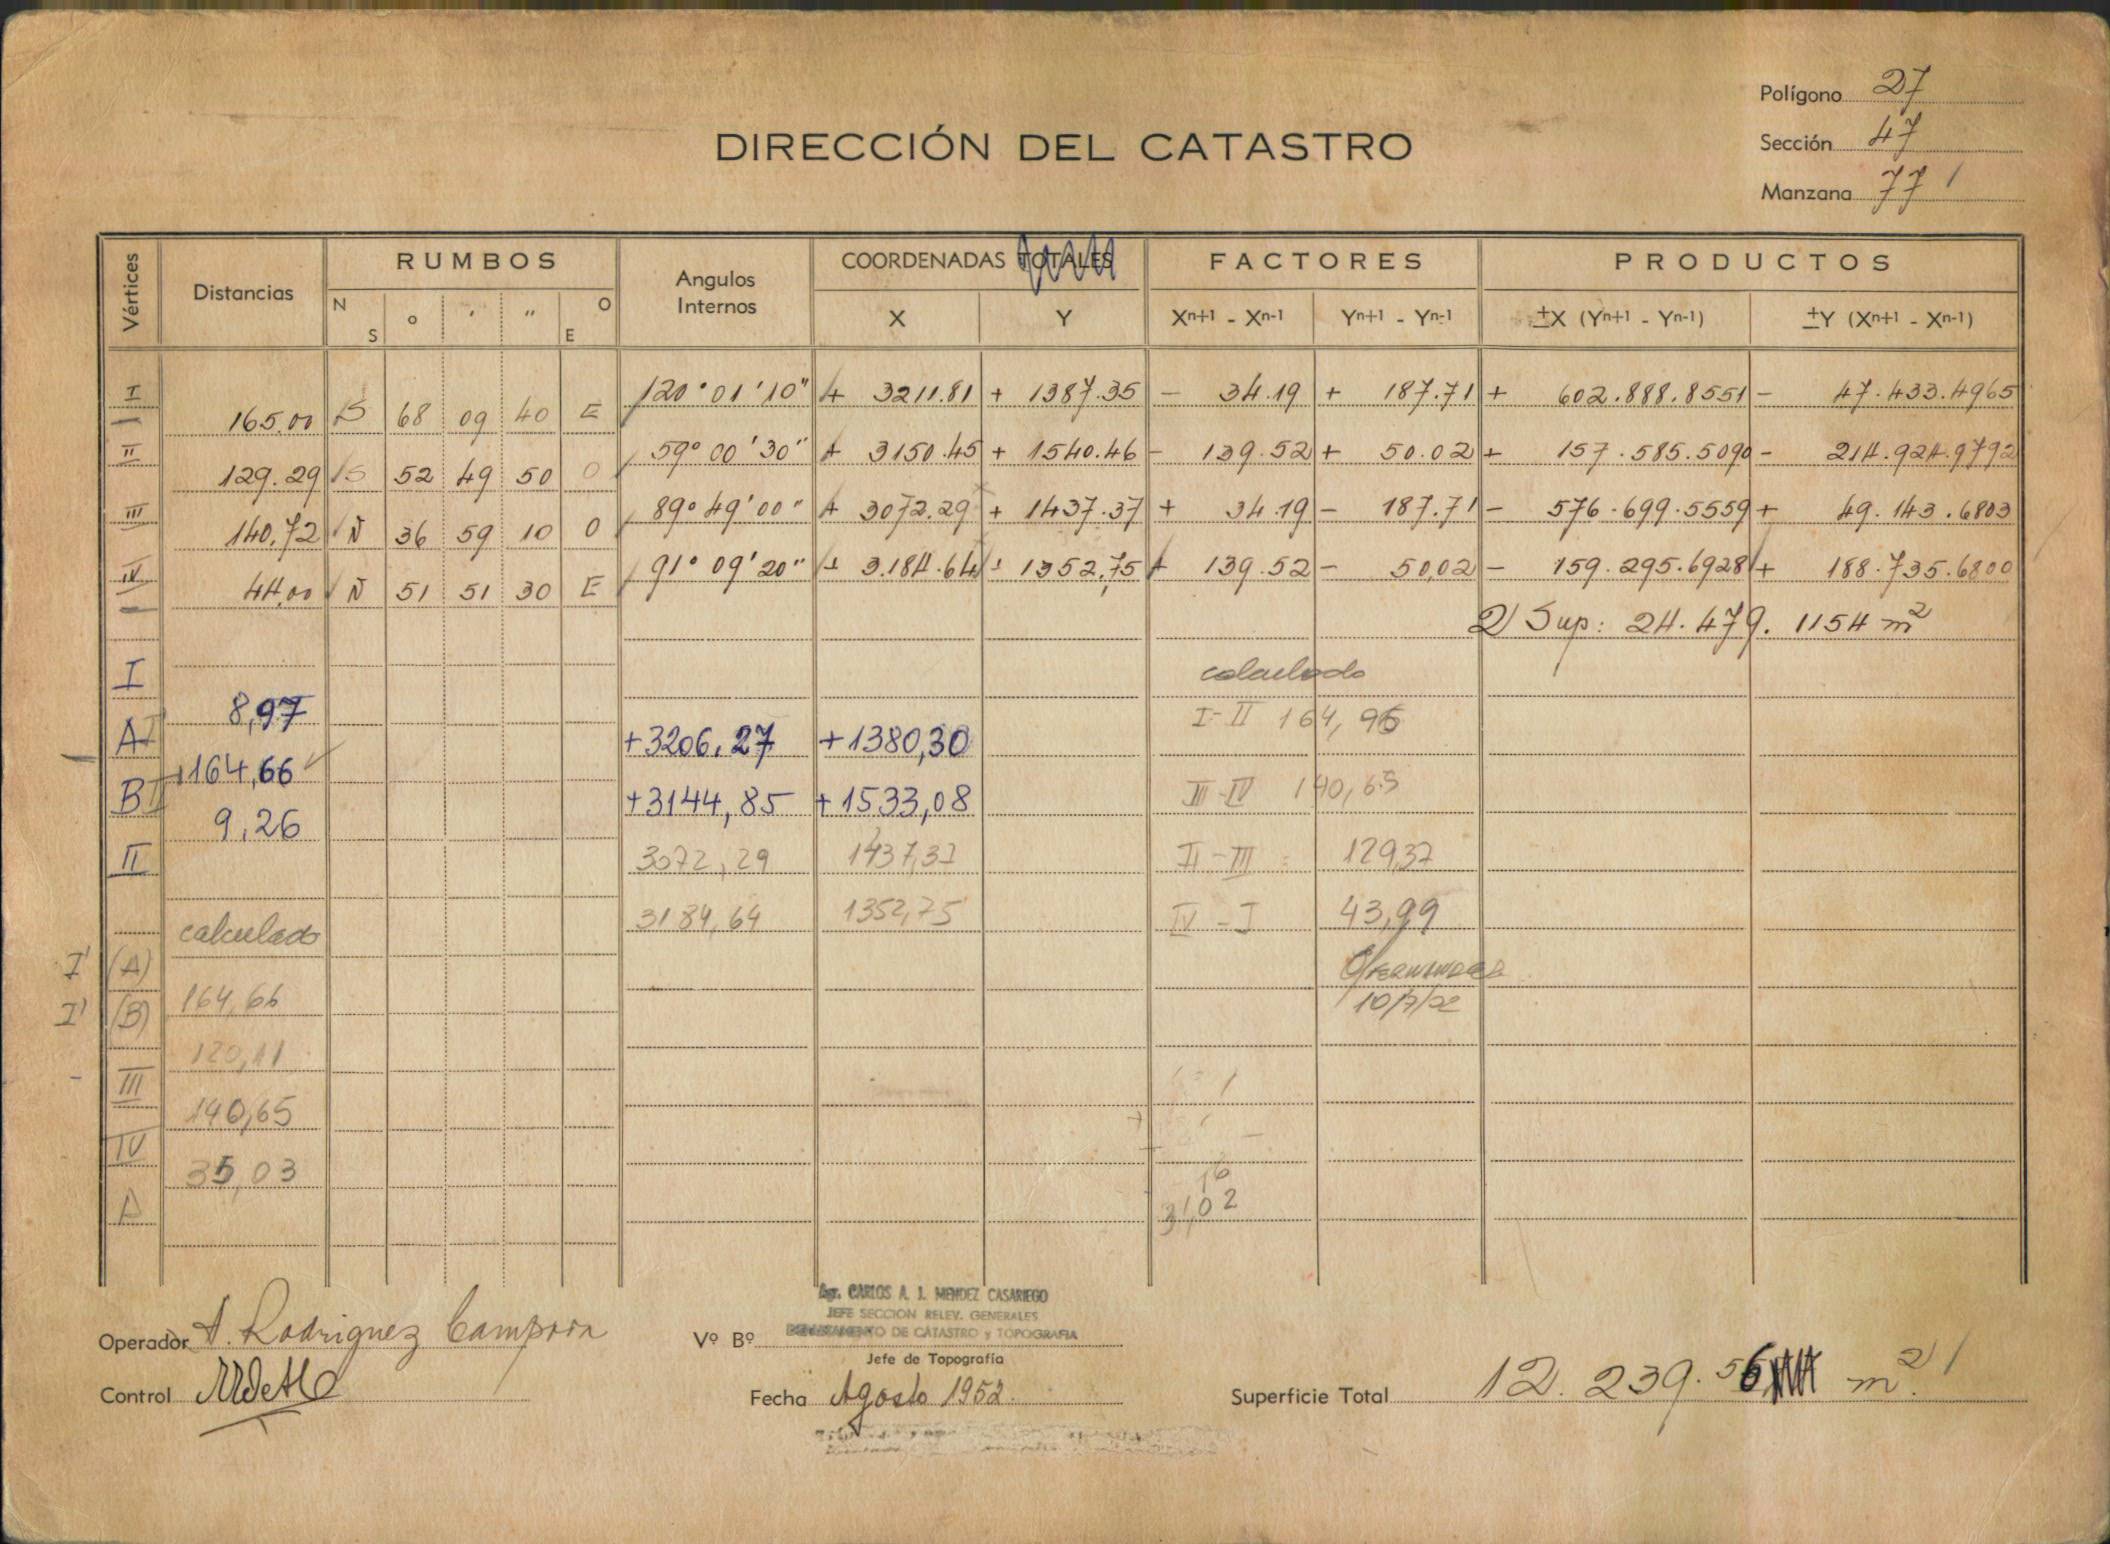 Polígono 27
DIRECCIÓN DEL CATASTRO
Sección 47
Manzana 77
Vértices Distancias RUMBOS Angulos Internos COORDENADAS TOTALES FACTORES PRODUCTOS
N S ° ' " O E X Y Xn+1 - Xn-1 Yn+1 - Yn-1 ±X (Yn+1 - Yn-1) ±Y (Xn+1 - Xn-1)
I 120° 01' 10" + 3211.81 + 1387.35 - 34.19 + 187.71 + 602.888.8551 - 47.433.4965
165.00 S 68 09 40 E
II 59° 00' 30" + 3150.45 + 1540.46 - 139.52 + 50.02 + 157.585.5090 - 214.924.9792
129.29 S 52 49 50 O
III 89° 49' 00" + 3072.29 + 1437.37 + 34.19 - 187.71 - 576.699.5559 + 49.143.6803
140.72 N 36 59 10 O
IV 91° 09' 20" + 3.184.64 + 1352,75 + 139.52 - 50,02 - 159.295.6928 + 188.735.6800
44.00 N 51 51 30 E
2 Sup: 24.479.1154 m²
I calculado
8,97
A I' +3206,27 +1380,30 I-II 164,96
164,66
B +3144,85 +1533,08 III-IV 140,65
9,26
II 3072,29 1437,37 II-III = 129,37
3184,64 1352,75 IV-I 43,99
calculado
I' (A)
164,66
I' (B)
120,11
III
140,65
IV
35,03
A
16
31,02
Operador A. Rodriguez Campora
Vº Bº
Agr. CARLOS A. J. MENDEZ CASARIEGO
JEFE SECCION RELEV. GENERALES
DEPARTAMENTO DE CATASTRO y TOPOGRAFIA
Jefe de Topografía
Control
Fecha Agosto 1952.
Superficie Total 12.239.56 m²